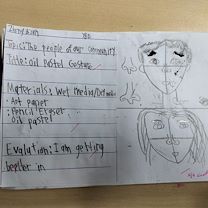 Topic: The people of our community
Title: oil Pastel Gesture
Materials: Wet media/Dry media
• Art Paper
• Pencil Eraser
Oil pastel
Evaluation: I am getting
better in